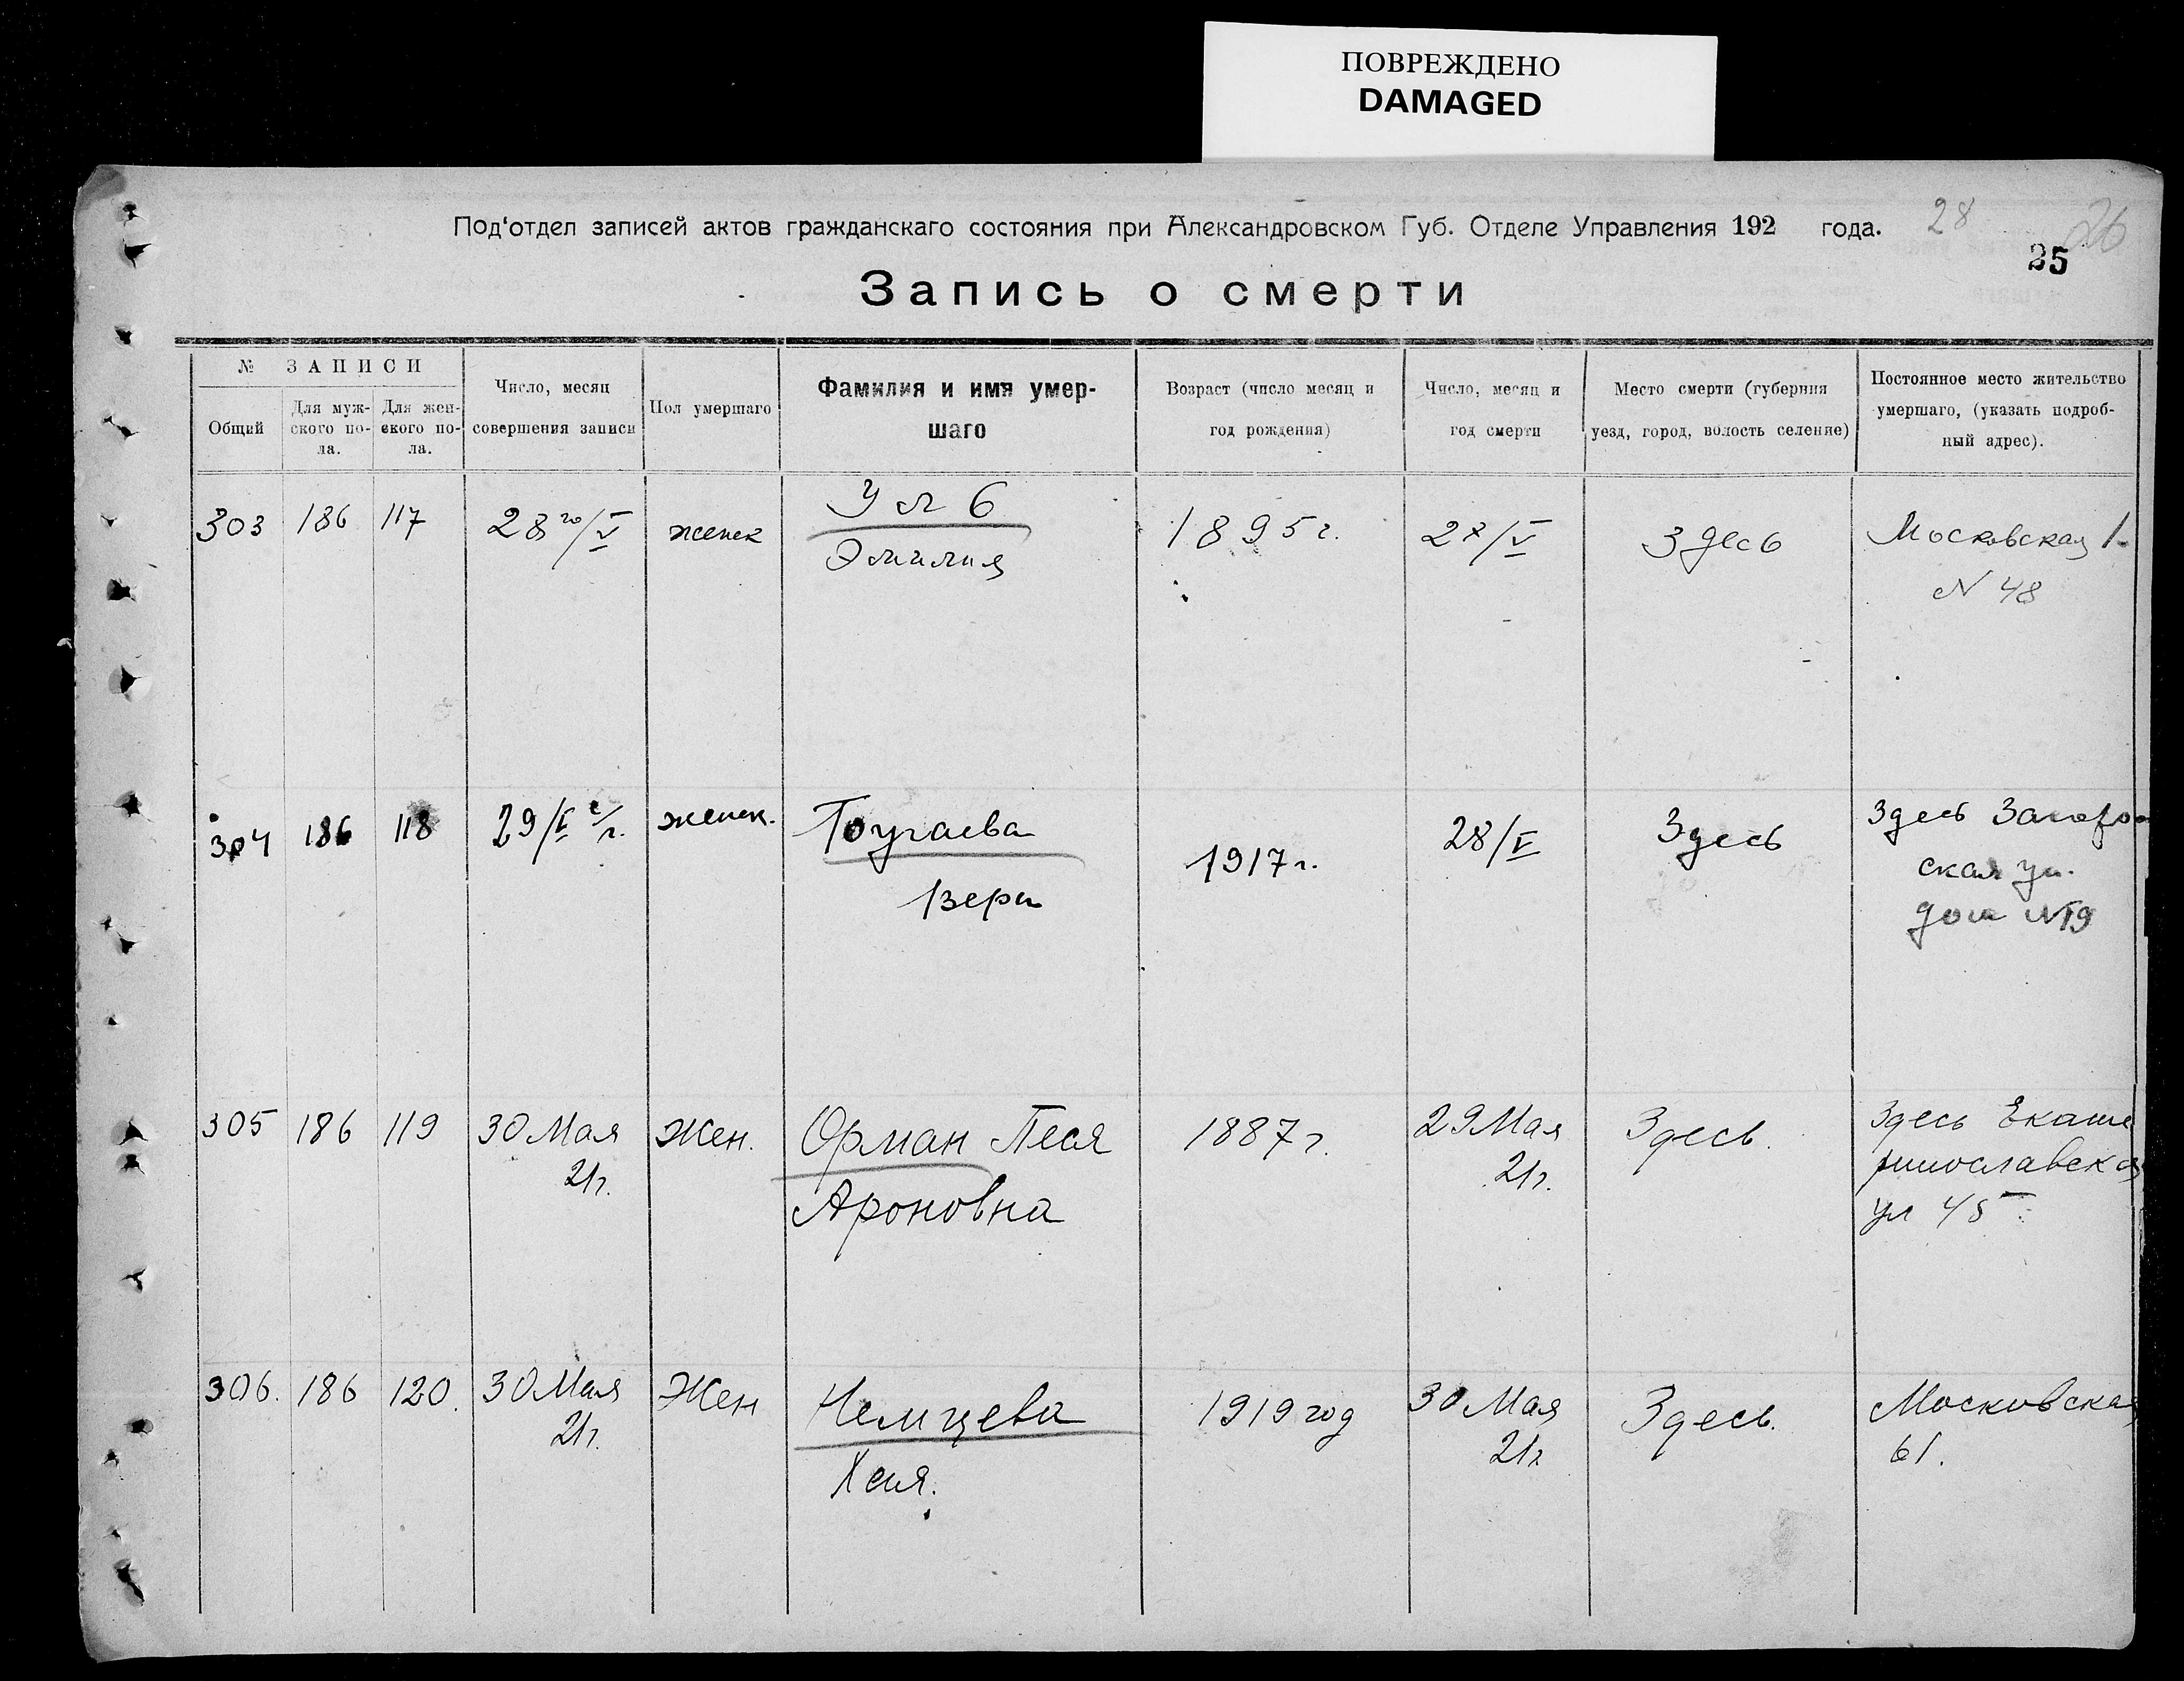 ПОВРЕЖДЕНО
DAMAGED
Под'отдел записей актов гражданскаго состояния при Александровском Губ. Отделе Управления 192 года.
28
26
25
Запись о смерти
№ ЗАПИСИ
Общий
Для муж-
ского по-
ла.
Для жен-
ского по-
ла.
Число, месяц
совершения записи
Пол умершаго
Фамилия и имя умер-
шаго
Возраст (число месяц и
год рождения)
Число, месяц и
год смерти
Место смерти (губерния
уезд, город, волость селение)
Постоянное место жительство
умершаго, (указать подроб-
ный адрес).
303 186 117 28го/V женск
Ул
Эмилия
1895 г.
27/V
Здесь
Московская
N 48
304 186 118 29/V с/г. женск.
Вера
1917 г.
28/V
Здесь
Здесь
ская ул.
дом №19
305 186 119 30 Мая
21г.
Жен.
Орман Песя
Ароновна
1887 г.
29 Мая
21г.
Здесь.
Здесь Екате
ринославская
ул 45
306. 186 120. 30 Мая
21г.
Жен
Немцева
Хая.
1919 год
30 Мая
21г
Здесь.
Московская
61.